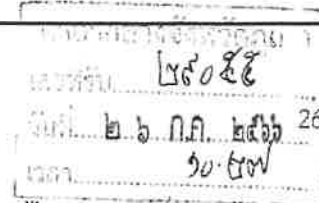 เลขที่รับ ๒๙๐๕๕
วันที่ ๒ ๖ ก.ค. ๒๕๖๖ 26
เวลา ๑๐.๒๗